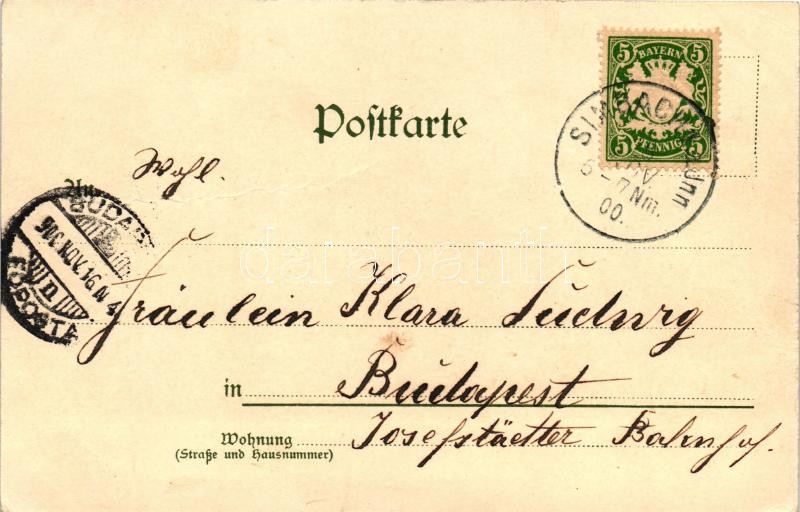 5 BAYERN 5
5 PFENNIG 5
Postkarte
SIMBACH a. Inn
NOV
6-7 Nm.
00.
Wohl.
An
BUDAPEST
900 NOV. 16 N 4
FŐPOSTA
Fräulein Klara Ludwig
in Budapest
Wohnung Josefstädtter Bahnhof.
(Straße und Hausnummer)
darabanth